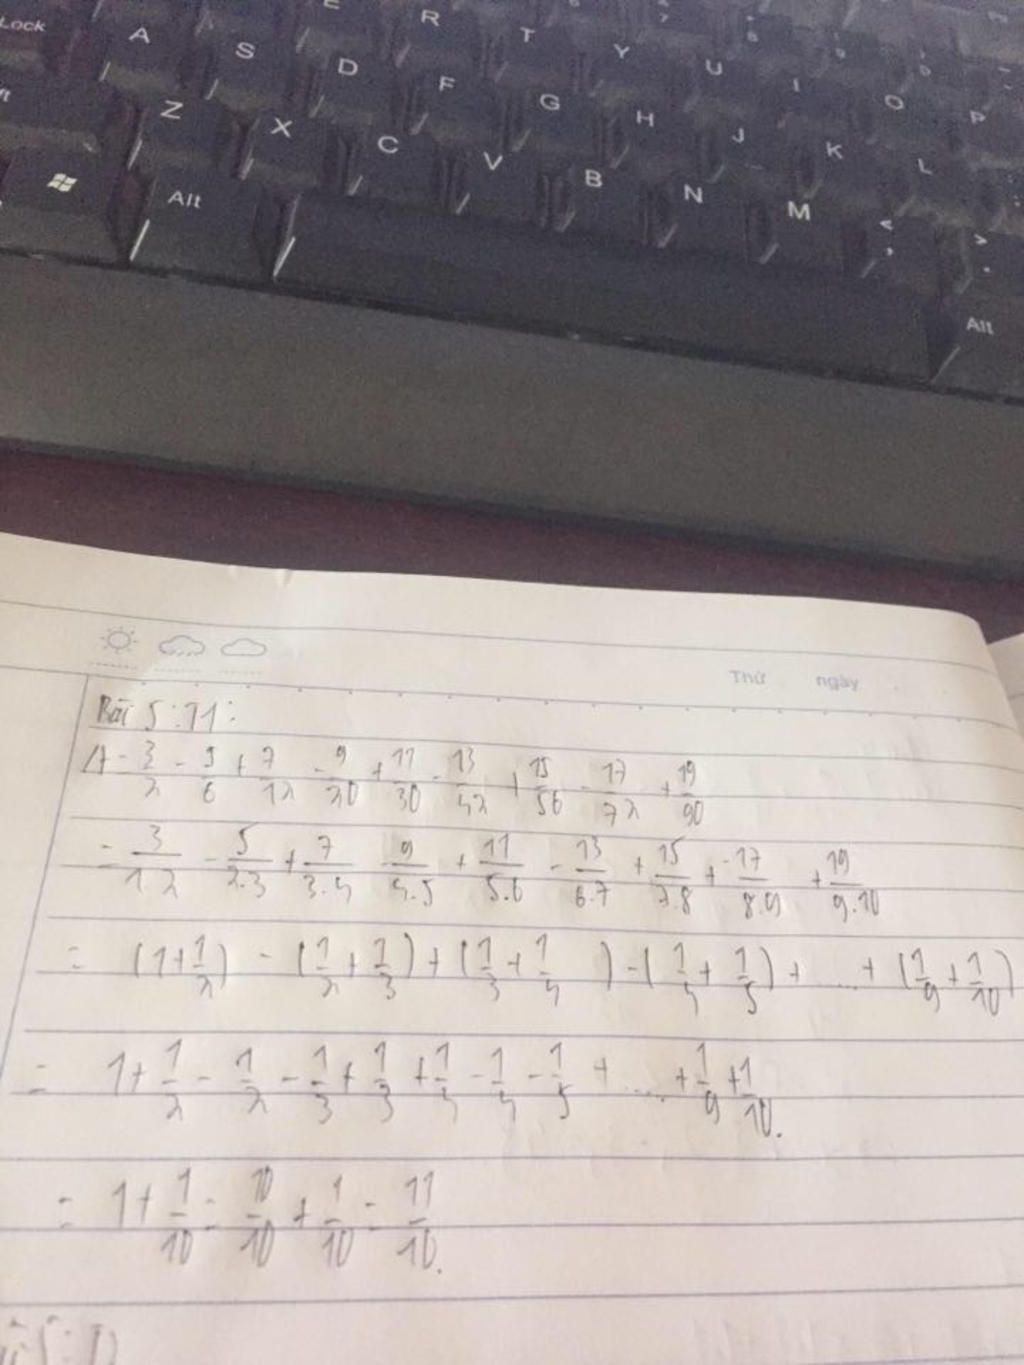 E R T Y
Lock A S D F G H J K L
U I O P
Z X C V B N M < ,
> .
Alt
Alt
Thứ ngày
Bài 5:11:
A = 3/2 - 5/6 + 7/12 - 9/20 + 11/30 - 13/42 + 15/56 - 17/72 + 19/90
= 3/1.2 - 5/2.3 + 7/3.4 9/4.5 + 11/5.6 - 13/6.7 + 15/7.8 + -17/8.9 + 19/9.10
= (1+1/2) - (1/2+1/3) + (1/3+1/4) - (1/4+1/5) + .... + (1/9+1/10)
= 1+1/2 - 1/2 - 1/3 + 1/3 + 1/4 - 1/4 - 1/5 + .... + 1/9 + 1/10.
= 1+1/10 = 10/10 + 1/10 = 11/10.